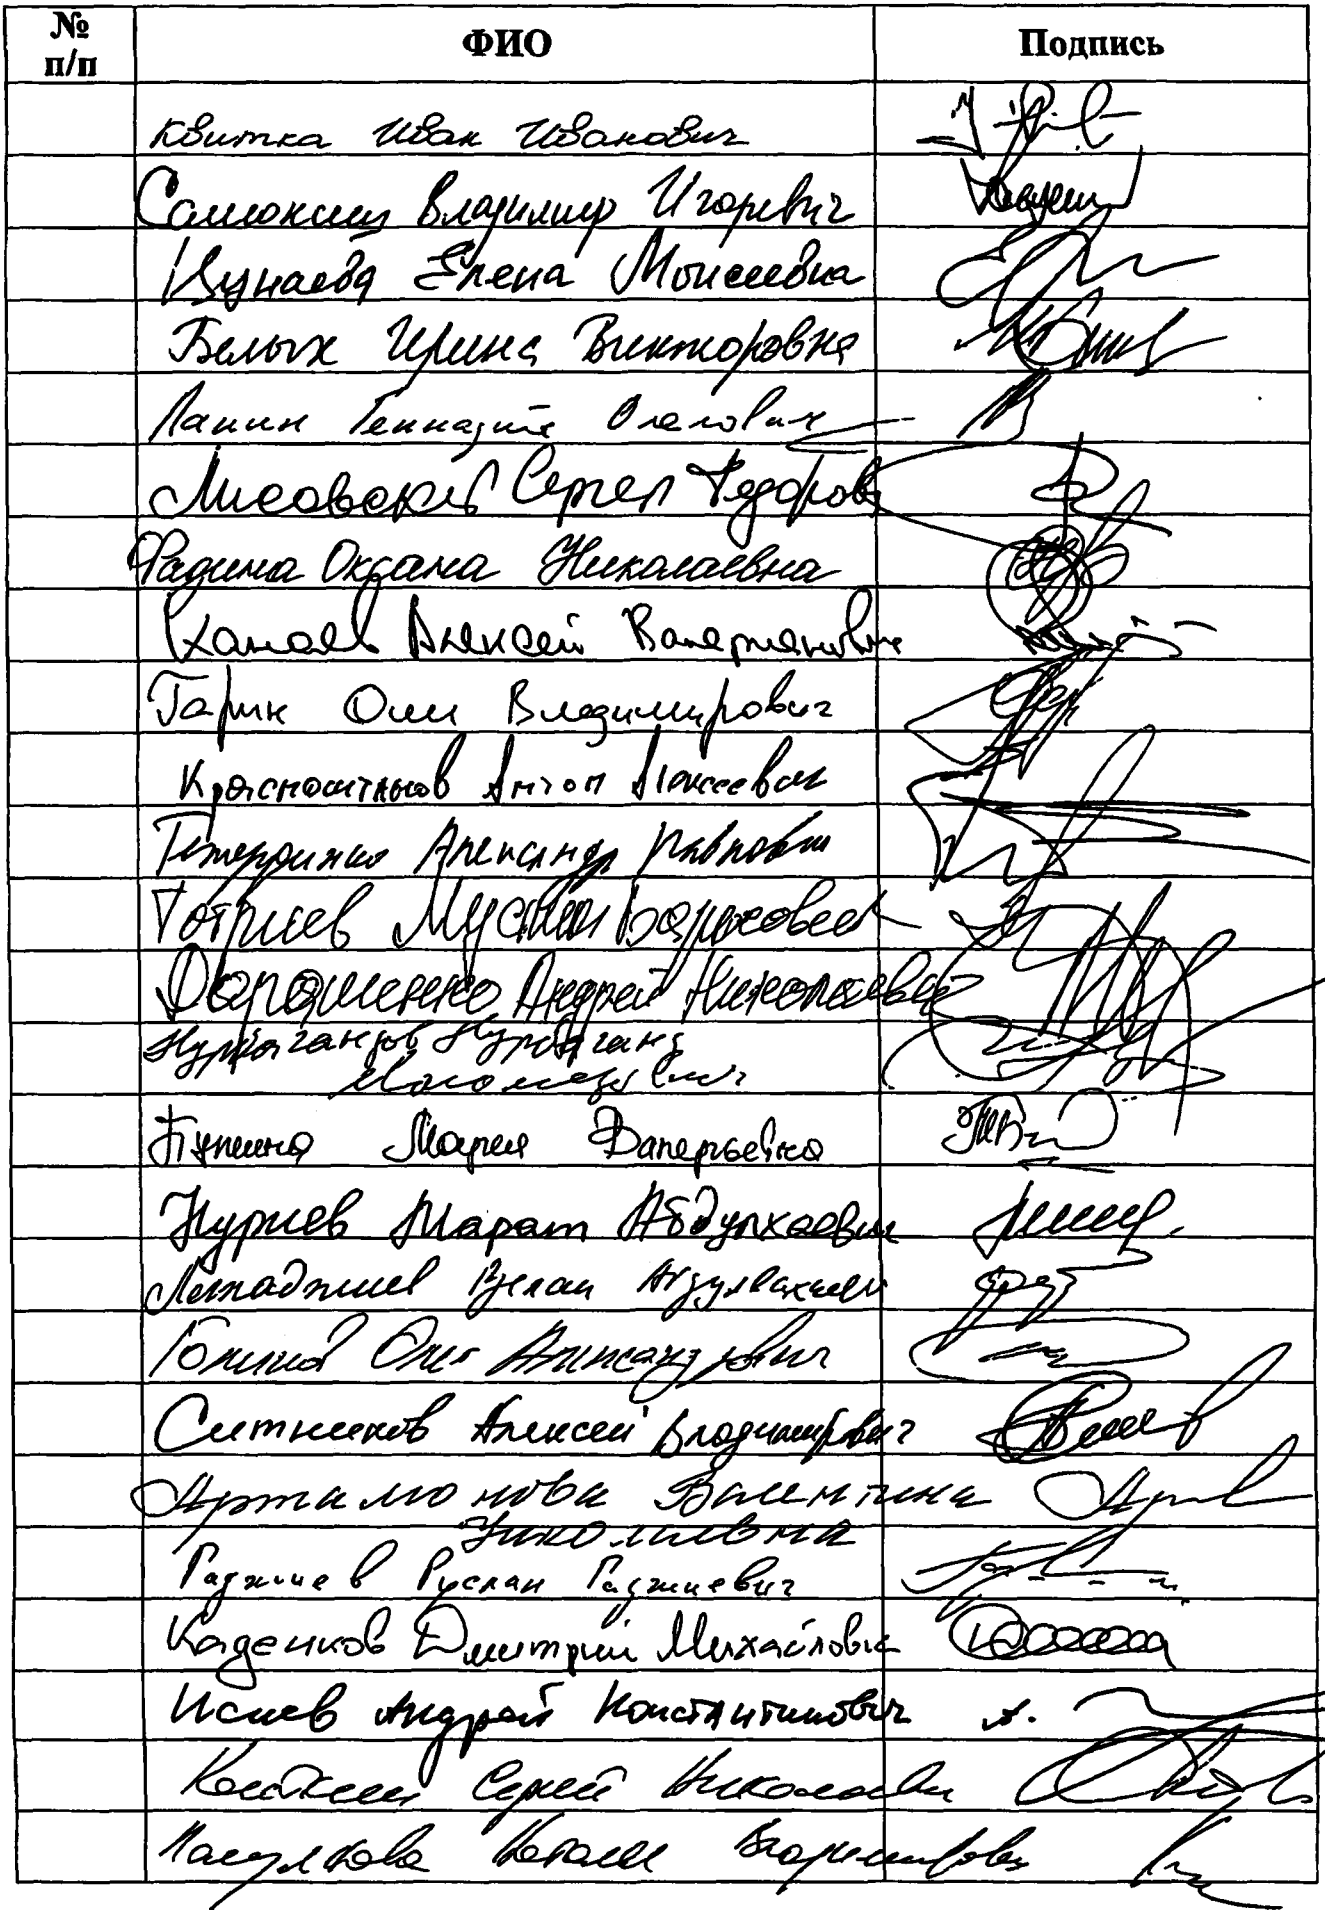 № п/п ФИО Подпись
Квитка Иван Иванович
Самокиш Владимир Игоревич
Цунаева Елена Моисеевна
Белых Ирина Викторовна
Панин Геннадий Олегович
Лисовский Сергей Федоров
Фадина Оксана Николаевна
Канаев Алексей Валерианович
Гарин Олег Владимирович
Красноштанов Антон Алексеевич
Тетердинко Александр Павлович
Тотриев Муслим Барисович
Дорошенко Андрей Николаевич
Нурбагандов Нурбаганд
Магомедович
Бутина Мария Валерьевна
Нуриев Марат Абдулхаевич
Лекаджиев Руслан Абдулвахиевич
Голиков Олег Александрович
Ситников Алексей Владимирович
Артамонова Валентина
Николаевна
Гаджиев Руслан Гаджиевич
Каденков Дмитрий Михайлович
Исаев Андрей Константинович
Кошкин Сергей Николаевич
Наталья Владимировна